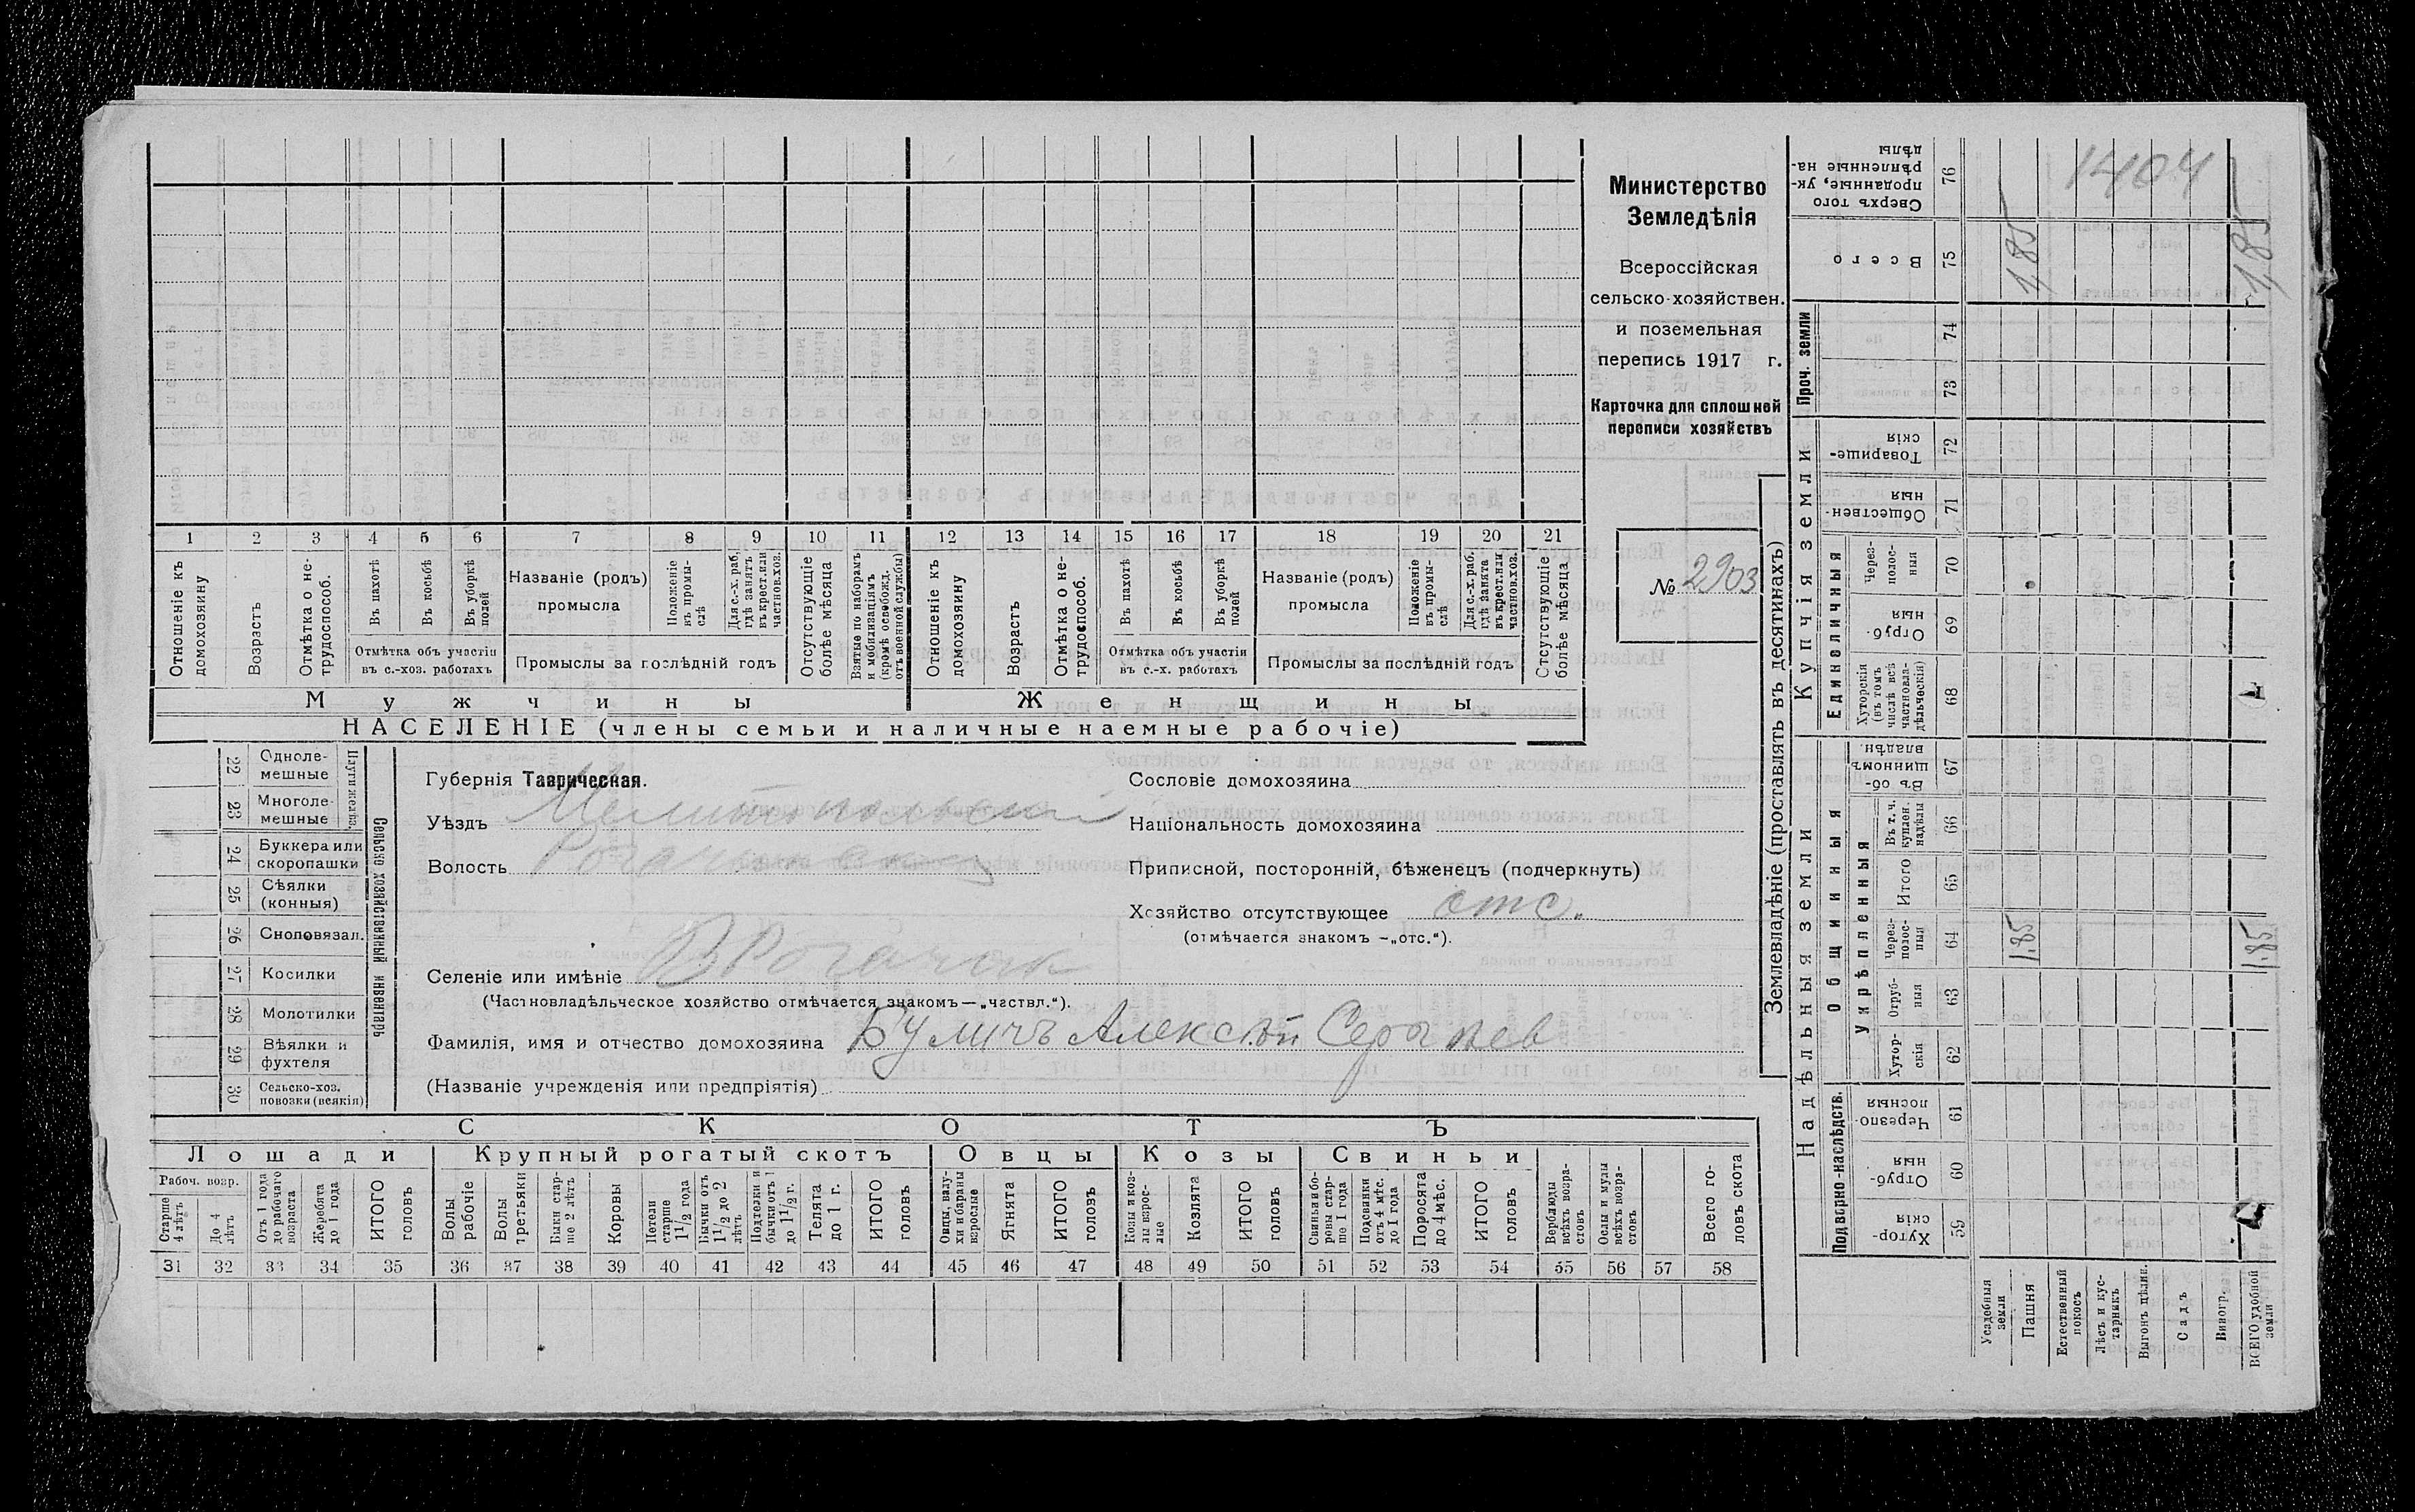 1 2 3 4 5 6 7 8 9 10 11 12 13 14 15 16 17 18 19 20 21
Отношеніе къ домохозяину
Возрастъ
Отмѣтка о не-трудоспособ.
Въ пахотѣ
Въ косьбѣ
Въ уборкѣ полей
Отмѣтка объ участіи въ с.-хоз. работахъ
Названіе (родъ) промысла
Положеніе въ промы-слѣ
Для с.-х. раб, гдѣ занятъ въ крест. или частнов. хоз.
Промыслы за послѣдній годъ
Отсутствующіе болѣе мѣсяца
Взятые по наборамъ и мобилизаціямъ (кромѣ освобожд. отъ военной службы)
Отношеніе къ домохозяину
Возрастъ
Отмѣтка о не-трудоспособ.
Въ пахотѣ
Въ косьбѣ
Въ уборкѣ полей
Отмѣтка объ участіи въ с.-х. работахъ
Названіе (родъ) промысла
Положеніе въ промы-слѣ
Для с.-х. раб. гдѣ занята въ крест. или частнов. хоз.
Промыслы за послѣдній годъ
Отсутствующіе болѣе мѣсяца
Мужчины
Женщины
НАСЕЛЕНІЕ (члены семьи и наличные наемные рабочіе)
Министерство
Земледѣлія
Всероссійская
сельско-хозяйствен.
и поземельная
перепись 1917 г.
Карточка для сплошней
переписи хозяйствъ
№ 2903
22 Одноле-мешные
23 Многоле-мешные
Плуги желѣз.
24 Буккера или скоропашки
25 Сѣялки (конныя)
26 Сноповязал.
27 Косилки
28 Молотилки
29 Вѣялки и фухтеля
30 Сельско-хоз. повозки (всякія)
Сельско хозяйственный инвентарь
Губернія Таврическая.
Уѣздъ Мелитопольскій
Волость Рогачикская
Селеніе или имѣніе В Рогачик
(Частновладѣльческое хозяйство отмѣчается знакомъ — „частвл.“).
Фамилія, имя и отчество домохозяина Буличъ Алексѣй Сергѣев
(Названіе учрежденія или предпріятія)
Сословіе домохозяина
Національность домохозяина
Приписной, посторонній, бѣженецъ (подчеркнуть)
Хозяйство отсутствующее отс.
(отмѣчается знакомъ –„отс.“).
СКОТЪ
Лошади
Крупный рогатый скотъ
Овцы
Козы
Свиньи
Рабоч. возр.
Старше 4 лѣтъ
До 4 лѣтъ
Отъ 1 года до рабочаго возраста
Жеребята до 1 года
ИТОГО головъ
Волы рабочіе
Волы третьяки
Быки стар-ше 2 лѣтъ
Коровы
Нетели старше 1 1/2 года
Бычки отъ 1 1/2 до 2 лѣтъ
Подтелки и бычки отъ 1 до 1 1/2 г.
Телята до 1 г.
ИТОГО головъ
Овцы, валу-хи и бараны взрослые
Ягнята
ИТОГО головъ
Козы и коз-лы взрос-лые
Козлята
ИТОГО головъ
Свиньи и бо-ровы стар-ше 1 года
Подсвинки отъ 4 мѣс. до 1 года
Поросята до 4 мѣс.
ИТОГО головъ
Верблюды всѣхъ возра-стовъ
Ослы и мулы всѣхъ возра-стовъ
Всего го-ловъ скота
31 32 33 34 35 36 37 38 39 40 41 42 43 44 45 46 47 48 49 50 51 52 53 54 55 56 57 58
Землевладѣніе (проставлять въ десятинахъ)
Купчія земли
Надѣльныя земли
Проч. земли
Единоличныя
Общинныя
Укрѣпленныя
Подворно-наслѣдств.
Сверхъ того проданные, ук-рѣпленные на-дѣлы 76
Всего 75 1,85 1,85
74
73
Товарище-скія 72
Обществен-ныя 71
Через-полос-ныя 70
Отруб-ныя 69
Хуторскія (въ томъ числѣ всѣ частновла-дѣльческія) 68
Въ об-щинномъ владѣн. 67
Въ т. ч. куплен. надѣлы 66
Итого 65
Через-полос-ныя 64 1,85 1,85
Отруб-ныя 63
Хутор-скія 62
Черезпо-лосныя 61
Отруб-ныя 60
Хутор-скія 59
Усадебныя земли
Пашня
Естественный покосъ
Лѣсъ и кус-тарникъ
Выгонъ цѣлин.
Садъ
Виногр.
ВСЕГО удобной земли
1404